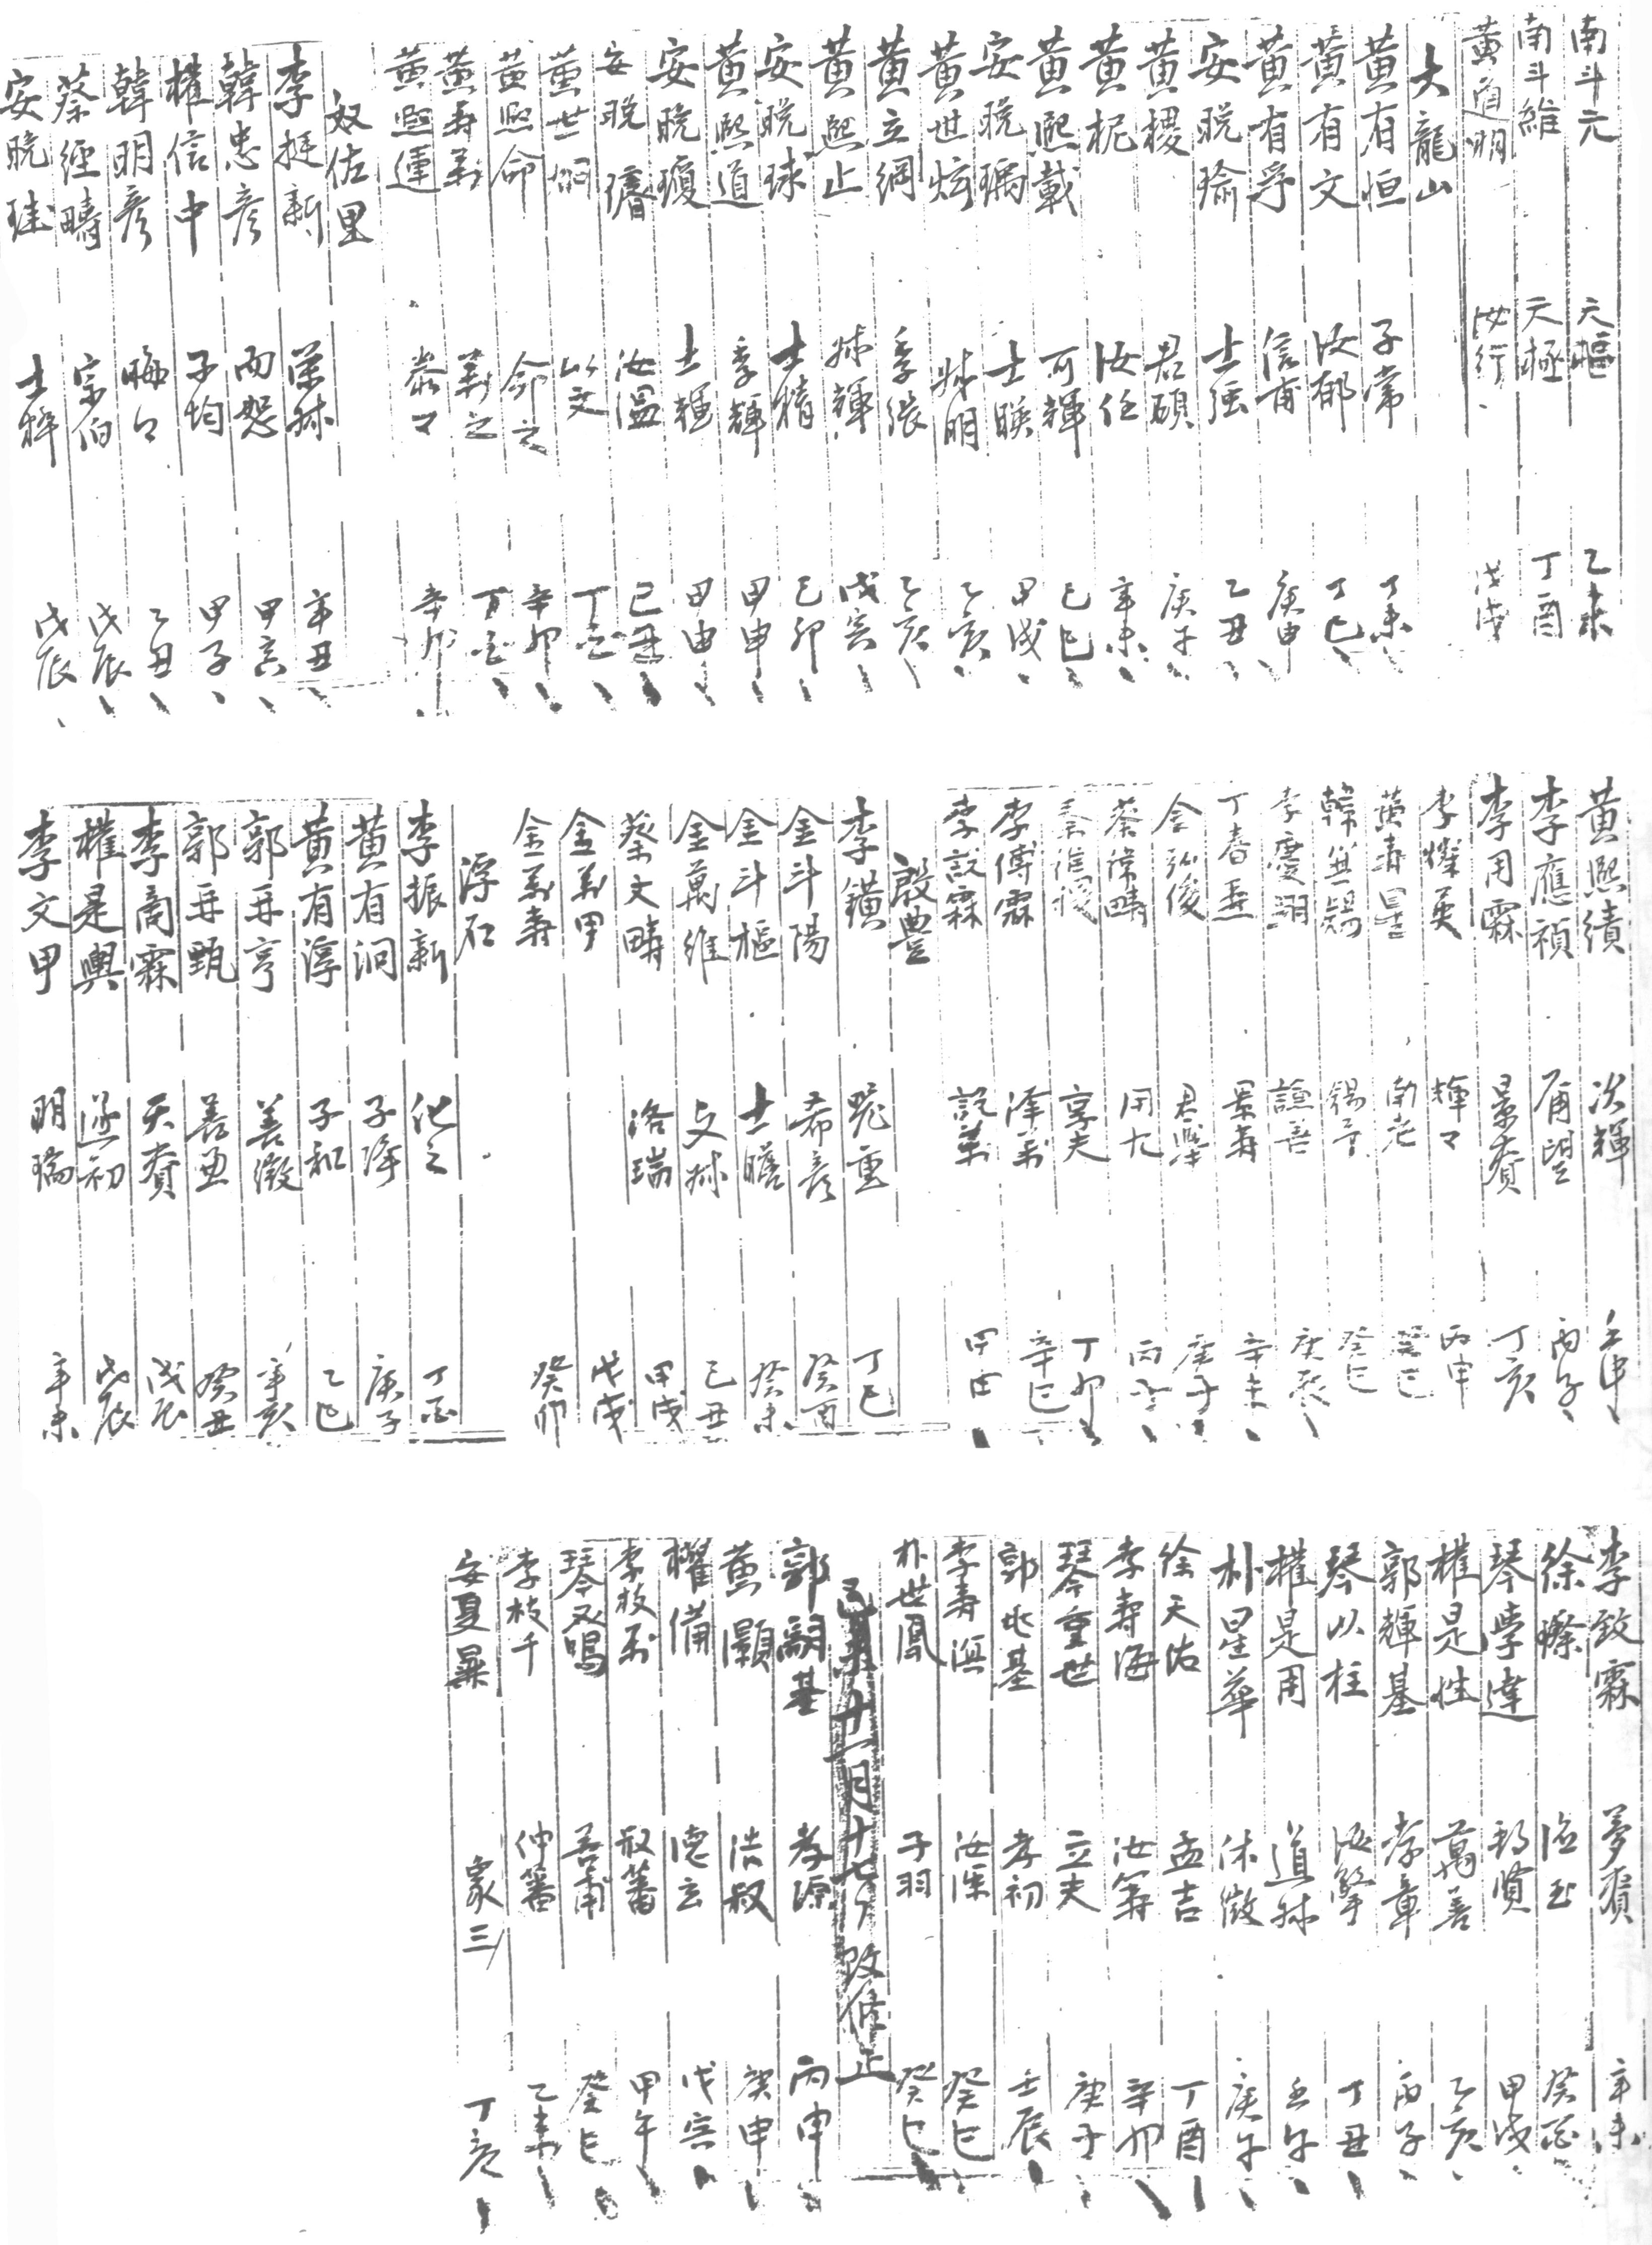 南斗元 天樞 乙未
南斗維 天極 丁酉
黃道明 汝行 戊戌
大龍山
黃有恒 子常 丁未
黃有文 汝郁 丁巳
黃有孚 信甫 庚申
安晩瑜 士强 乙丑
黃㮨 君碩 庚子
黃柅 汝任 辛未
黃熙載 可輝 己巳
安晩瑀 士暎 甲戌
黃世炫 叔明 乙亥
黃立綱 季張 乙亥
黃熙止 叔輝 戊寅
安晩球 士精 己卯
黃熙道 季輝 甲申
安晩瓊 士輝 甲申
安晩㻿 汝溫 己丑
黃世炯 以文 丁
黃熙命 命之 辛卯
黃壽 之 丁
黃熙運 辛卯
奴佐里
李挺新 榮叔 辛丑
韓忠彦 而恕 甲
權信中 子均 甲子
韓明彦 晦 乙丑
蔡經疇 宗伯 戊辰
安晩珪 士粹 戊辰
黃熙績 次輝 壬申
李應禎 甫望 丙子
李用霖 景賚 丁亥
李燦英 輝 丙申
黃壽昌 南老 癸巳
韓無錫 錫予 癸巳
李慶翊 謙善 庚辰
丁春 景壽 辛未
金弘俊 君 庚子
蔡 疇 用九 丙子
秦 享夫 丁卯
李傅霖 辛巳
李說霖 說 甲申
殷豊
李鐄 重 丁巳
金斗陽 希彦 癸酉
金斗樞 士瞻 癸未
金萬維 文叔 己丑
蔡文疇 洛瑞 甲戌
金萬甲 戊戌
金萬壽 癸卯
浮石
李振新 化之 丁酉
黃有泂 子 庚子
黃有淳 子和 乙巳
郭再亨 善徵 辛亥
郭再甄 善 癸丑
李商霖 天賚 戊辰
權是輿 遂初 戊辰
李文甲 明瑞 辛未
李致霖 夢賚 辛未
徐 玉 癸酉
琴學達 賢 甲戌
權是性 萬善 乙亥
郭輝基 孝章 丙子
琴以柱 汝擎 丁丑
權是用 道叔 壬午
朴星華 休徵 庚午
徐天佑 孟吉 丁酉
李壽海 汝 辛卯
琴重世 立夫 庚子
郭兆基 孝初 壬辰
李壽 汝深 癸巳
朴世鳳 子羽 癸巳
十一月十七 改修正
郭嗣基 孝源 丙申
黃灝 浩叔 庚申
權備 德 戊寅
李枝 叔蕃 甲午
琴 鳴 善甫 癸巳
李枝千 仲蕃 乙未
安夏鼎 象三 丁亥